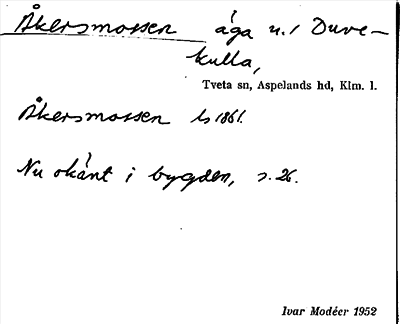 Åkersmossen äga n. 1 Duve-
kulla,
Tveta sn, Aspelands hd, Klm. l.
Åkersmossen Ls 1861.
Nu okänt i bygden, s. 26.
Ivar Modéer 1952